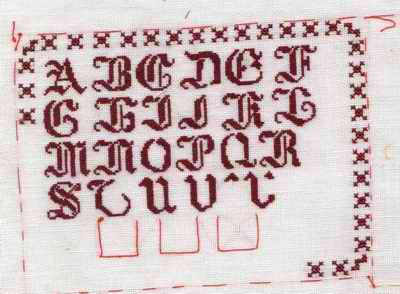 A B C D E F
G H I J K L
M N O P Q R
S T U V